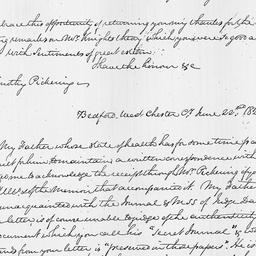 brace this opportunity of returning you my thanks for the
ing remarks on Mr. Knights theory which you were so good a
with Sentiments of great esteem
Have the honour &c
mothy Pickering
Bedford, West Chester Cy June 20th 182
My Father whose state of health has for some time pa
painful to maintain a written correspondence with
me to acknowledge the receipt through Mr. Pickering of yo
& of the Memoir that accompanied it. My Father
unacquainted with the Journal & MSS of Judge
letter is of course unable to judge of the authenticity
document which you call his "Secret Journal," &
from your letter is "preserved in those papers". He is